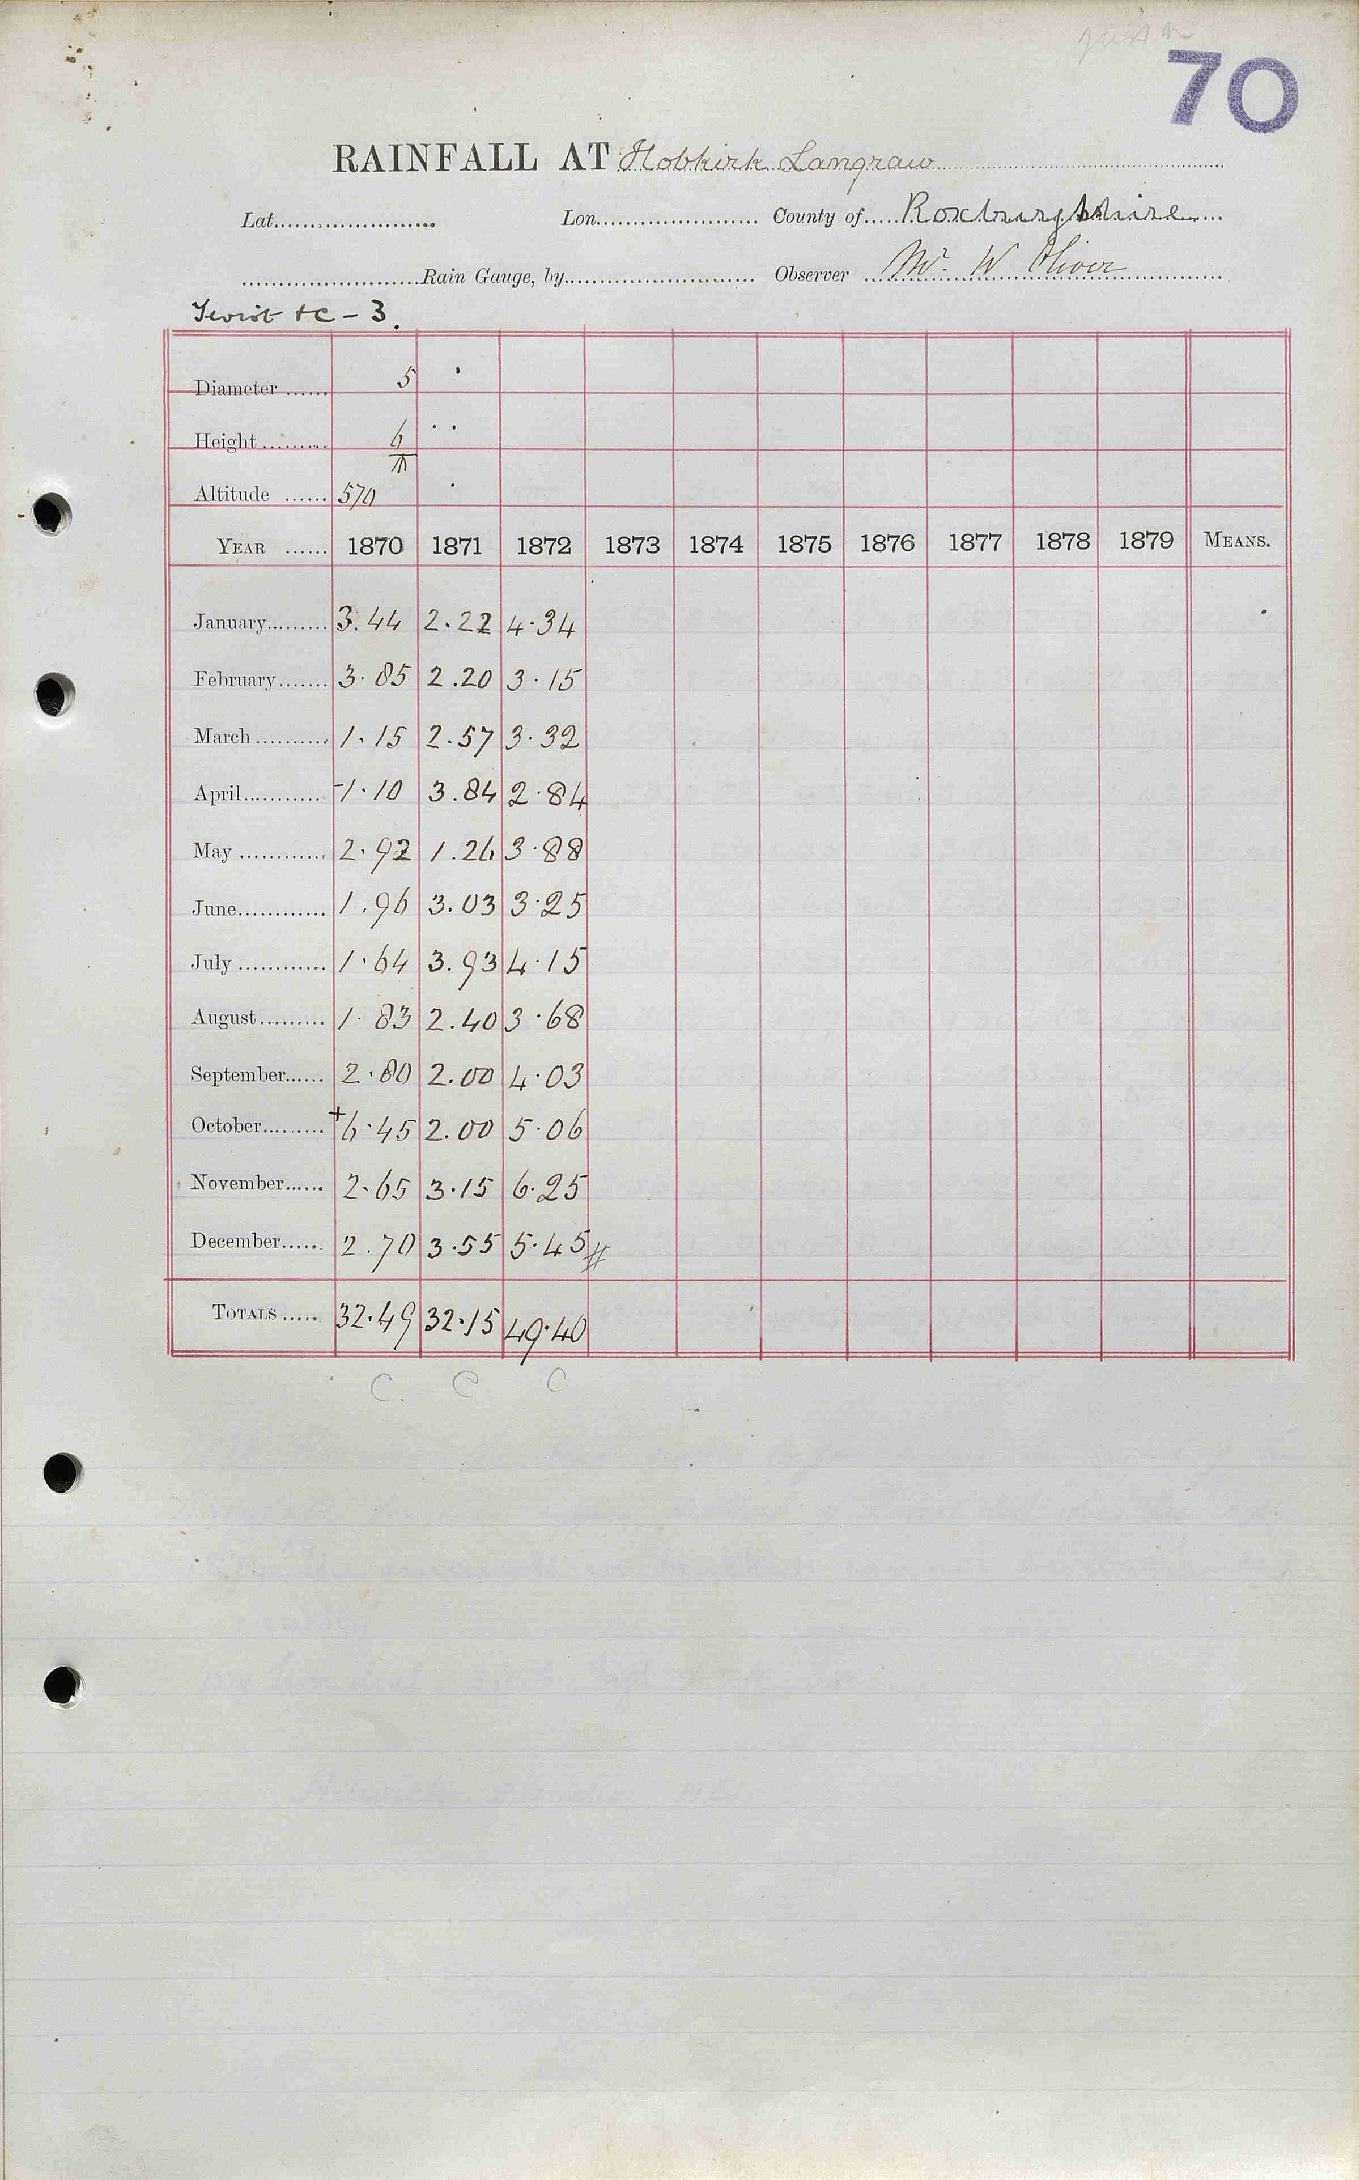 70
RAINFALL AT Hobkirk Langraw
Lat. Lon. County of Roxburghshire
Rain Gauge, by Observer Mr. W Oliver
Teviot &C - 3.
Diameter 5
Height 6
Altitude 570
YEAR 1870 1871 1872 1873 1874 1875 1876 1877 1878 1879 MEANS.
January 3.44 2.22 4.34
February 3.85 2.20 3.15
March 1.15 2.57 3.32
April -1.10 3.84 2.84
May 2.92 1.26 3.88
June 1.96 3.03 3.25
July 1.64 3.93 4.15
August 1.83 2.40 3.68
September 2.80 2.00 4.03
October +6.45 2.00 5.06
November 2.65 3.15 6.25
December 2.70 3.55 5.45 #
TOTALS 32.49 32.15 49.40
C C C